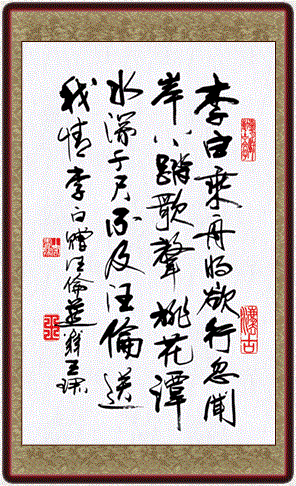 李白乘舟将欲行忽闻
岸上踏歌聲桃花潭
水深千尺不及汪倫送
我情李白赠汪倫